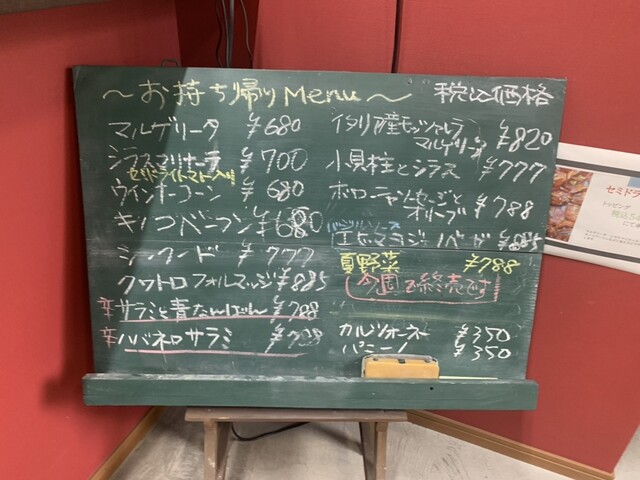 ～お持ち帰りMenu～ 税込価格
マルゲリータ ¥680
シラスマリナーラ ¥700
セミドライトマト入り
ウインナーコーン ¥680
キノコベーコン ¥680
シーフード ¥777
クワトロフォルマッジ ¥885
辛 サラミと青なんばん ¥788
辛 ハバネロサラミ ¥788
イタリア産モッツァレラ
マルゲリータ ¥820
小貝柱とシラス ¥777
ボローニャソーセージと
オリーブ ¥788
バジルソース
¥885
夏野菜 ¥788
今週で終売です
カルツォーネ ¥350
パニーノ ¥350
セミドラ
トッピング
税込